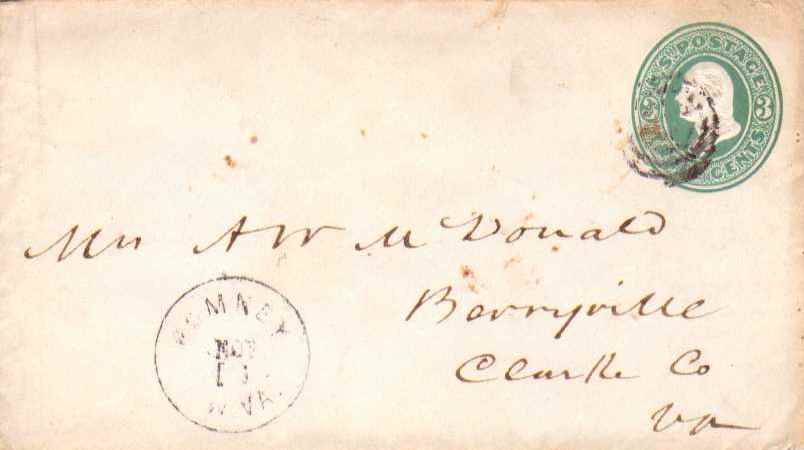 U.S. POSTAGE
3
3
CENTS
Mrs A W McDonald
Berryville
Clarke Co
Va
ROMNEY
NOV
W.VA.